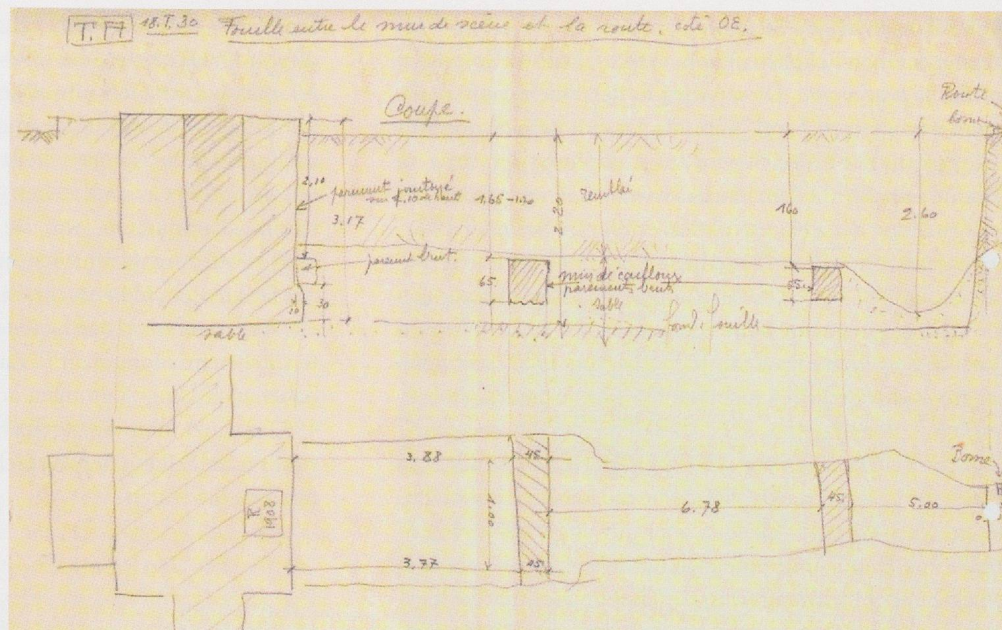 T. 18.I.30 Fouille entre le mur de scène et la route, côté OE.
Coupe.
Route
2,10
parement jointoyé
sur 2,10 de haut
3.17
1.65-1.70
2.20
remblai
160
2.60
parement brut.
65
mur de cailloux
parements bruts
sable
65
30
10
sable
fond fouille
3.88
45
Borne
1.00
R
1908
6.78
45
5.00
3.77
45